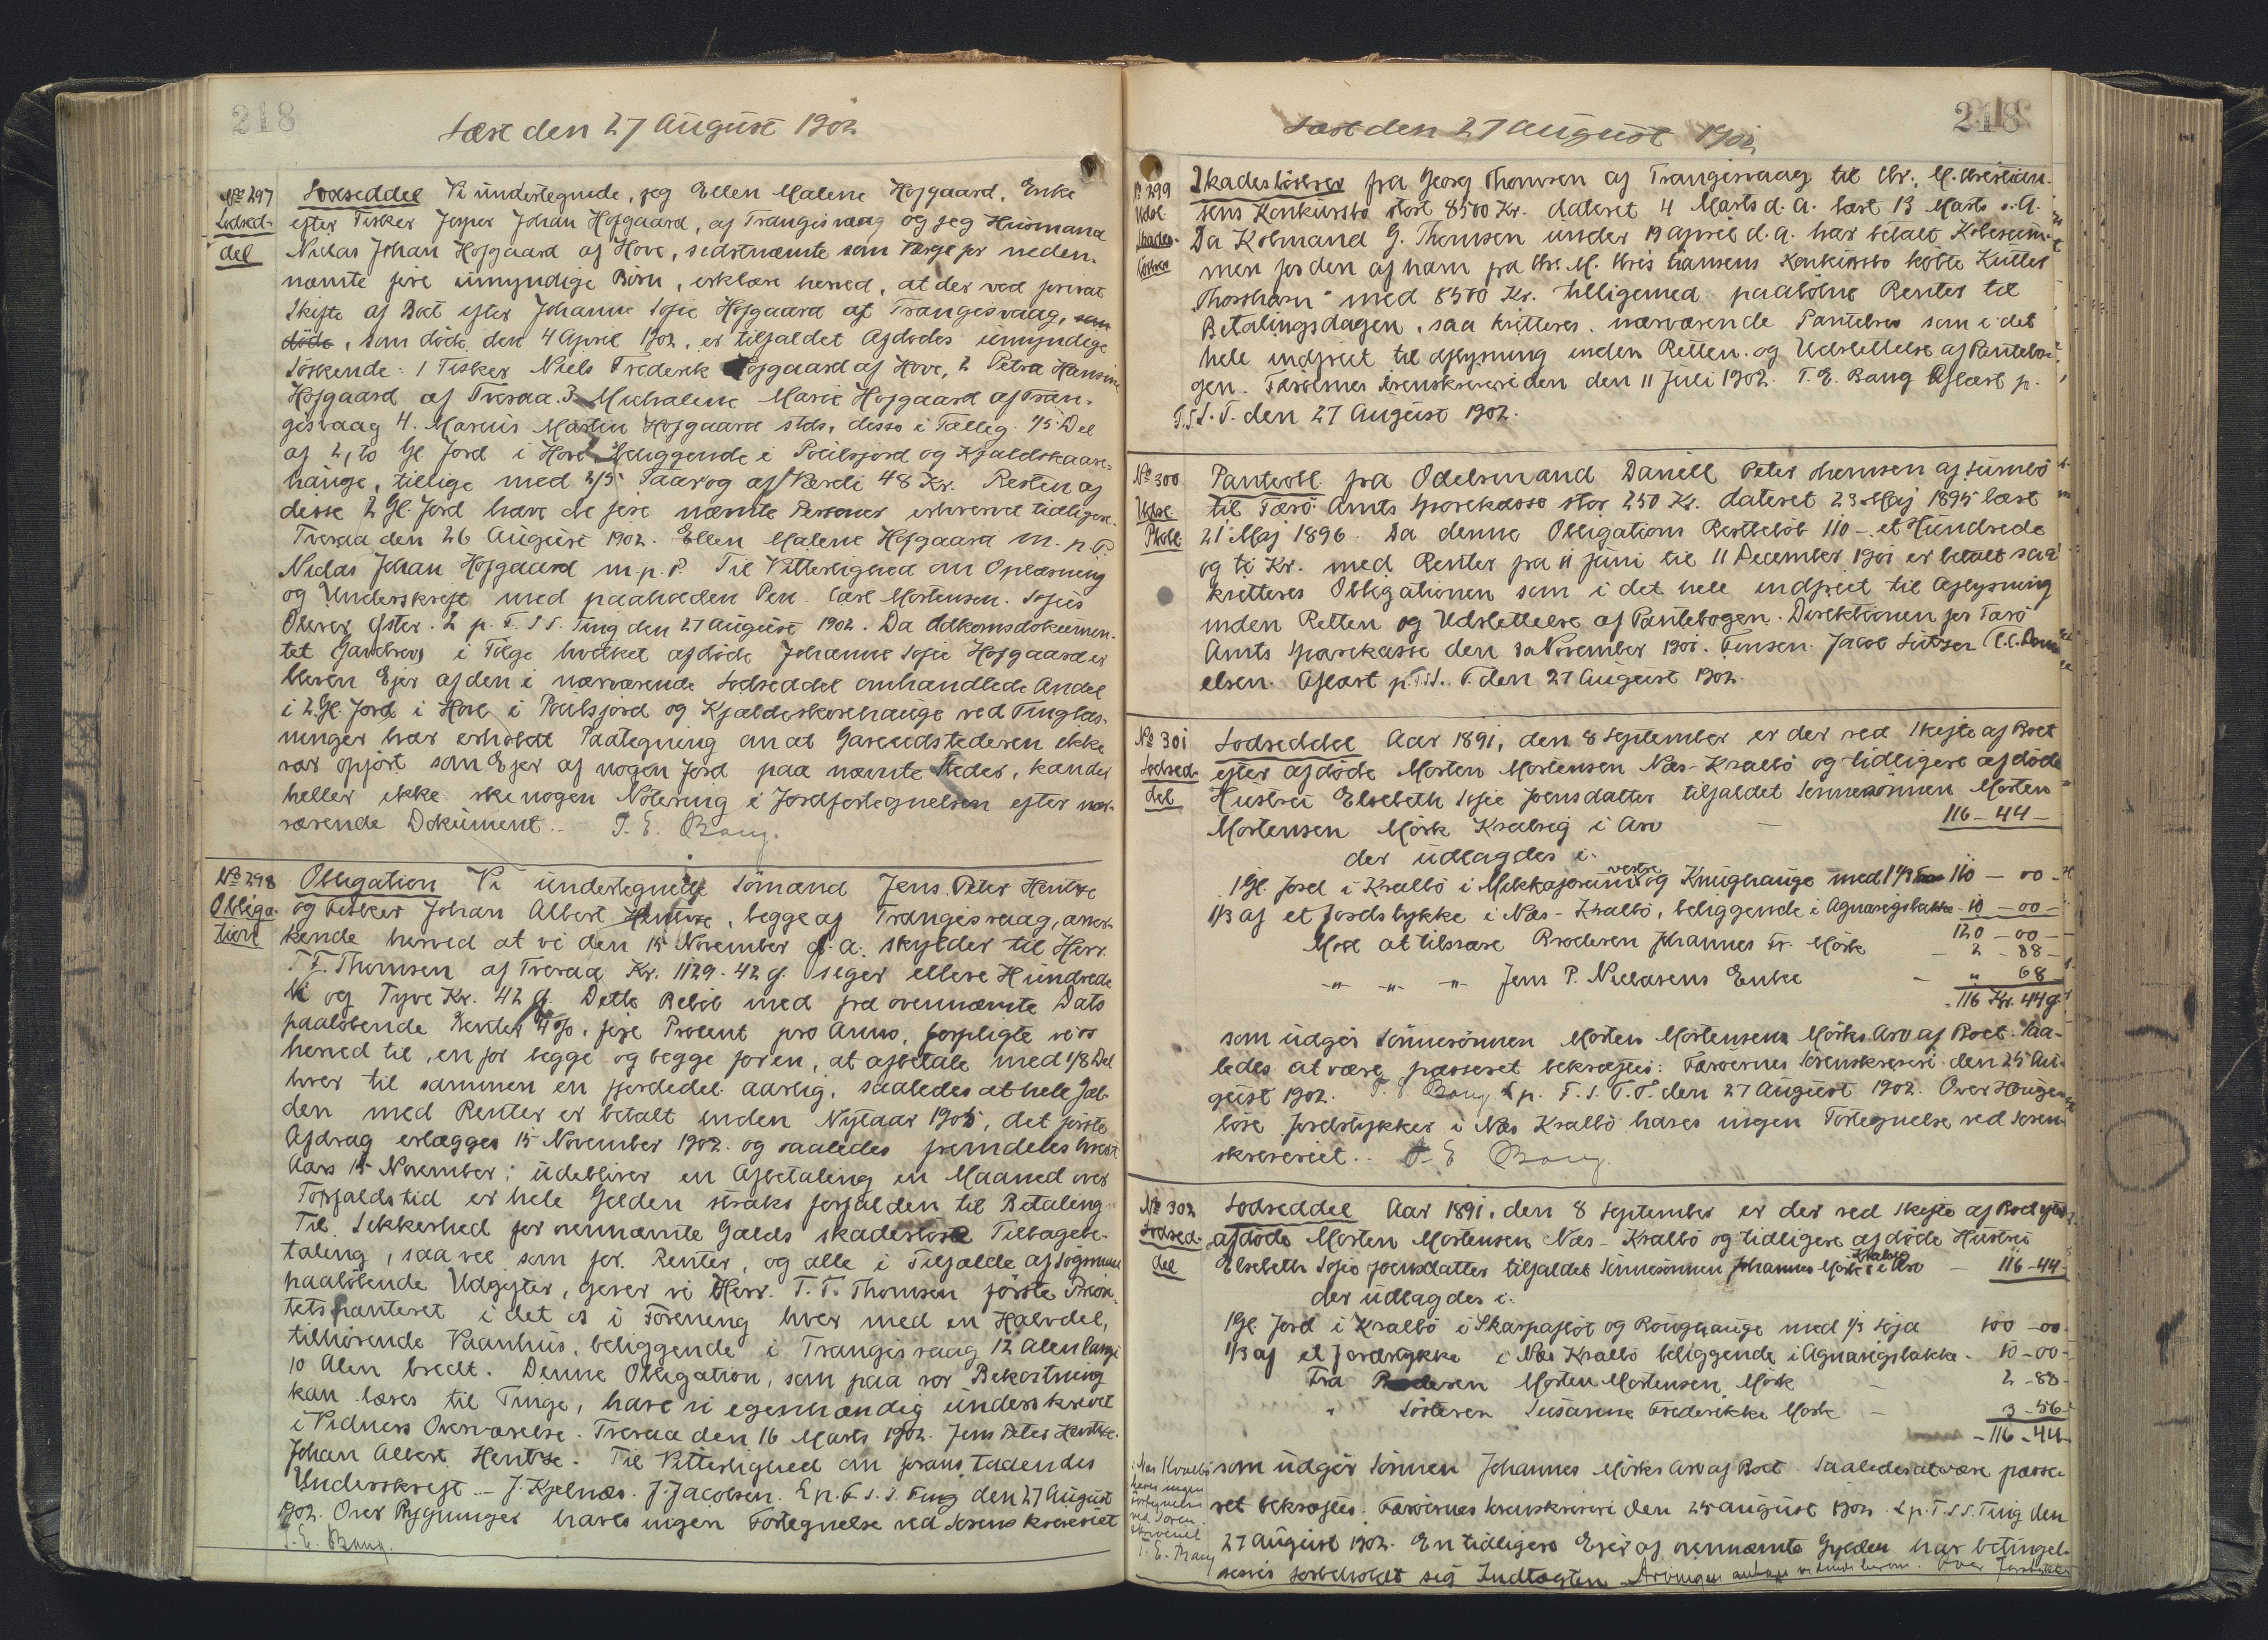 218
Læst den 27 August 1902
No 297
Lodsed-
del
Lodseddel Vi undertegnede, jeg Ellen Malene Hofgaard, Enke
efter Fisker Jesper Johan Hofgaard, af Trangisvaag og jeg Huusmand
Niclas Johan Hofgaard af Hove, sidstnævnte som Værge for neden-
nævnte fire umyndige Børn, erklære herved, at der ved privat
Skifte af Boet efter Johanne Sofie Hofgaard af Trangisvaag, som
døde, som døde den 4 April 1902, er tilfaldet Afdødes umyndige
Søskende: 1 Fisker Niels Frederik Hofgaard af Hove, 2 Petra Hansine
Hofgaard af Tveraa. 3. Michaline Marie Hofgaard af Tran-
gisvaag 4. Marius Martin Hofgaard stds, disse i Fælleg. 1/5 Del
af 2, to Gl. Jord i Hove beliggende i Poulsjord og Kjaldskaare-
hauge, tillige med 2/5 Faarog af Værdi 48 Kr. Resten af
disse 2 Gl. Jord have de fire nævnte Personer erhvervet tidligere.
Tveraa den 26 August 1902. Ellen Malene Hofgaard m. p. P.
Niclas Johan Hofgaard m. p. P. Til Vitterlighed om Oplæsning
og Underskrift med paaholden Pen. Carl Mortensen. Sofus
Olivur Øster. L p. F. S S. Ting den 27 August 1902. Da Adkomsdokumen-
tet (Gavebrev) i Følge hvilket afdøde Johanne Sofie Hofgaard er
bleven Ejer af den i nærværende Lodseddel omhandlede Andel
i 2 Gl. Jord i Hove i Poulsjord og Kjældeskorehauge ved Tinglæs-
ninger har erholdt Paategning om at Gaveudstederen ikke
var opført som Ejer af nogen Jord paa nævnte Steder, kan der
heller ikke ske nogen Notering i Jordfortegnelsen efter nær-
værende Dokument. T. E. Bang.
No 298
Obliga-
tion
Obligation Vi undertegnede Sømand Jens Peter Hentze
og Fisker Johan Albert Hentze, begge af Trangisvaag, aner-
kende herved at vi den 15 November f. a. skylder til Herr.
T. F. Thomsen af Tveraa Kr. 1129. 42 Ø. siger elleve Hundrede
Ni og Tyve Kr. 42 Ø. Dette Beløb med fra ovennævnte Dato
paaløbende Renter 4 %, fire Procent pro Anno, forpligte vi os
herved til, en for begge og begge for en, at afbetale med 1/8 Del
hver til sammen en fjerdedel aarlig, saaledes at hele Gæl-
den med Renter er betalt inden Nytaar 1905, det første
Afdrag erlægges 15 November 1902. og saaledes fremdeles hvert
Aars 15 November; udebliver en Afbetaling en Maaned over
Forfaldstid er hele Gælden straks forfalden til Betaling.
Til Sikkerhed for ovennævnte Gælds skadesløse Tilbagebe-
taling, saavel som for Renter, og alle i Tilfælde af Søgsmaal
paaløbende Udgifter, giver vi Herr. T. F. Thomsen første Priori-
tets panteret i det os i Forening hver med en Halvdel,
tilhørende Vaanhus, beliggende i Trangisvaag 12 Alen langt
10 Alen bredt. Denne Obligation, som paa vor Bekostning
kan læses til Tinge, have vi egenhændig underskrivet
i Vidners Overværelse. Tveraa den 16 Marts 1902. Jens Peter Hentze.
Johan Albert Hentze. Til Vitterlighed om foranstaaendes
Underskrift. J. Kjelnæs. J. Jacobsen. L p. F S. S. Ting den 27 August
1902. Over Bygninger haves ingen Fortegnelse ved Sorenskriveriet
T. E. Bang.
218
Læst den 27 August 1902
No 299
Udsl.
Skades-
løsbrev
Skadesløsbrev fra Georg Thomsen af Trangisvaag til Chr. M. Christian-
sens Konkursbo stort 8500 Kr. dateret 4 Marts d. a. læst 13 Marts s. A.
Da Købmand G. Thomsen under 19 April d. a. har betalt Købesum-
men for den af ham fra Chr. M. Chris tiansens Konkursbo købte Kutter
Thorshavn" med 8500 Kr. tilligemed paaløbne Renter til
Betalingsdagen, saa kvitteres nærværende Pantebrev som i det
hele indfriet til Aflysning inden Retten og Udslettelse af Pantebo-
gen. Færøernes Sorenskriveri den 11 Juli 1902. T. E. Bang Aflæst p.
F. S S. T. den 27 August 1902.
No 300
Udsl.
Pkobl.
Panteobl. fra Odelsmand Daniell Peter Thomsen af Sumbø
til Færø Amts Sparekasse stor 250 Kr. dateret 23 Maj 1895 læst
21 Maj 1896. Da denne Obligations Restbeløb 110 - et Hundrede
og ti Kr. med Renter fra 11 Juni til 11 December 1901 er betalt saa
kvitteres Obligationen som i det hele indfriet til Aflysning
inden Retten og Udslettelse af Pantebogen. Direktionen for Færø
Amts Sparekasse den 30 November 1901. Finsen. Jacob Lützen C. C. Dani
elsen. Aflæst p. F. S. S. T. den 27 August 1902.
No 301
Lodsed-
del
Lodseddel Aar 1891, den 8 September er der ved Skifte af Boet
efter afdøde Morten Mortensen Næs-Kvalbø og tidligere afdøde
Hustru Elsebeth Sofie Joensdatter tilfaldet Sønnesønnen Morten
Mortensen Mørk Kvalvig i Arv - 116-44-
der udlagdes i.
1 Gl. Jord i Kvalbø i vestre og Knughauge med 1 1/3 110 - 00
1/3 af et Jordstykke i Næs-Kvalbø, beliggende i Agnarsgsbakke 10 - 00 -
120 - 00 -
Mod at tilsvare Broderen Johannes Fr. Mørk - 2 - 88 -
-"- -"- -"- Jens P. Niclasens Enke - " 68 -
- 116 Kr. 44 Ø.
som udgør Sønnesønnen Morten Mortensens Mørks Arv af Boet. Saa-
ledes at være passeret bekræftes: Færøernes Sorenskriveri den 25 Au-
gust 1902. T. E Bang L p. F. S. T. T. den 27 August 1902. Over Haugen
løse Jordstykker i Næs Kvalbø haves ingen Fortegnelse ved Soren-
skriveriet. T. E Bang.
No 302
Lodsed-
del
Lodseddel Aar 1891, den 8 September er der ved Skifte af Boet efter
afdøde Morten Mortensen Næs-Kvalbø og tidligere afdøde Hustru
Elsebeth Sofie Joensdatter tilfaldet Sønnesønnen Johannes Mørk i Arv - 116-44-
der udlagdes i.
1 Gl. Jord i Kvalbø i Skarpaflöt og Roughauge med 1/3 100 - 00
1/3 af et Jordstykke i Næs Kvalbø beliggende i Agnarsgsbakke - 10 - 00 -
Fra Broderen Morten Mortensen Mørk - 2 - 88 -
" Søsteren Susanne Frederikke Mørk - 3 - 56
- 116 - 44 -
i Næs Kvalbø
haves ingen
Fortegnelse
ved Soren-
skriveriet
T. E. Bang
som udgør Sønnen Johannes Mørks Arv af Boet. Saaledes at være passe-
ret bekræftes. Færøernes Sorenskriveri den 25 August 1902. L p. F. S S. Ting den
27 August 1902. En tidligere Ejer af ovennævnte Gylden har betingel-
sesvis forbeholdt sig Indtægten. Over Jordstykker